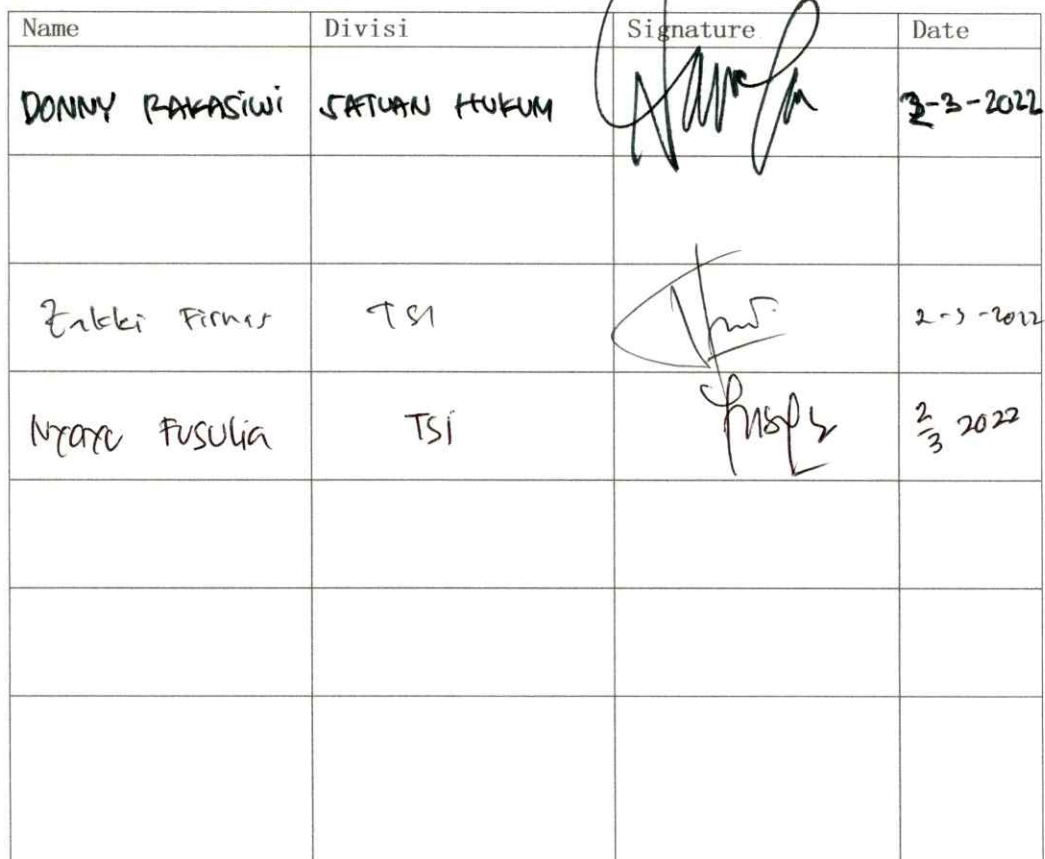 Name Divisi Signature Date
DONNY RAKASIWI SATUAN HUKUM 2-3-2022
Zakki Firnas TSI 2-3-2022
Nyayu Fusulia TSI 2/3 2022